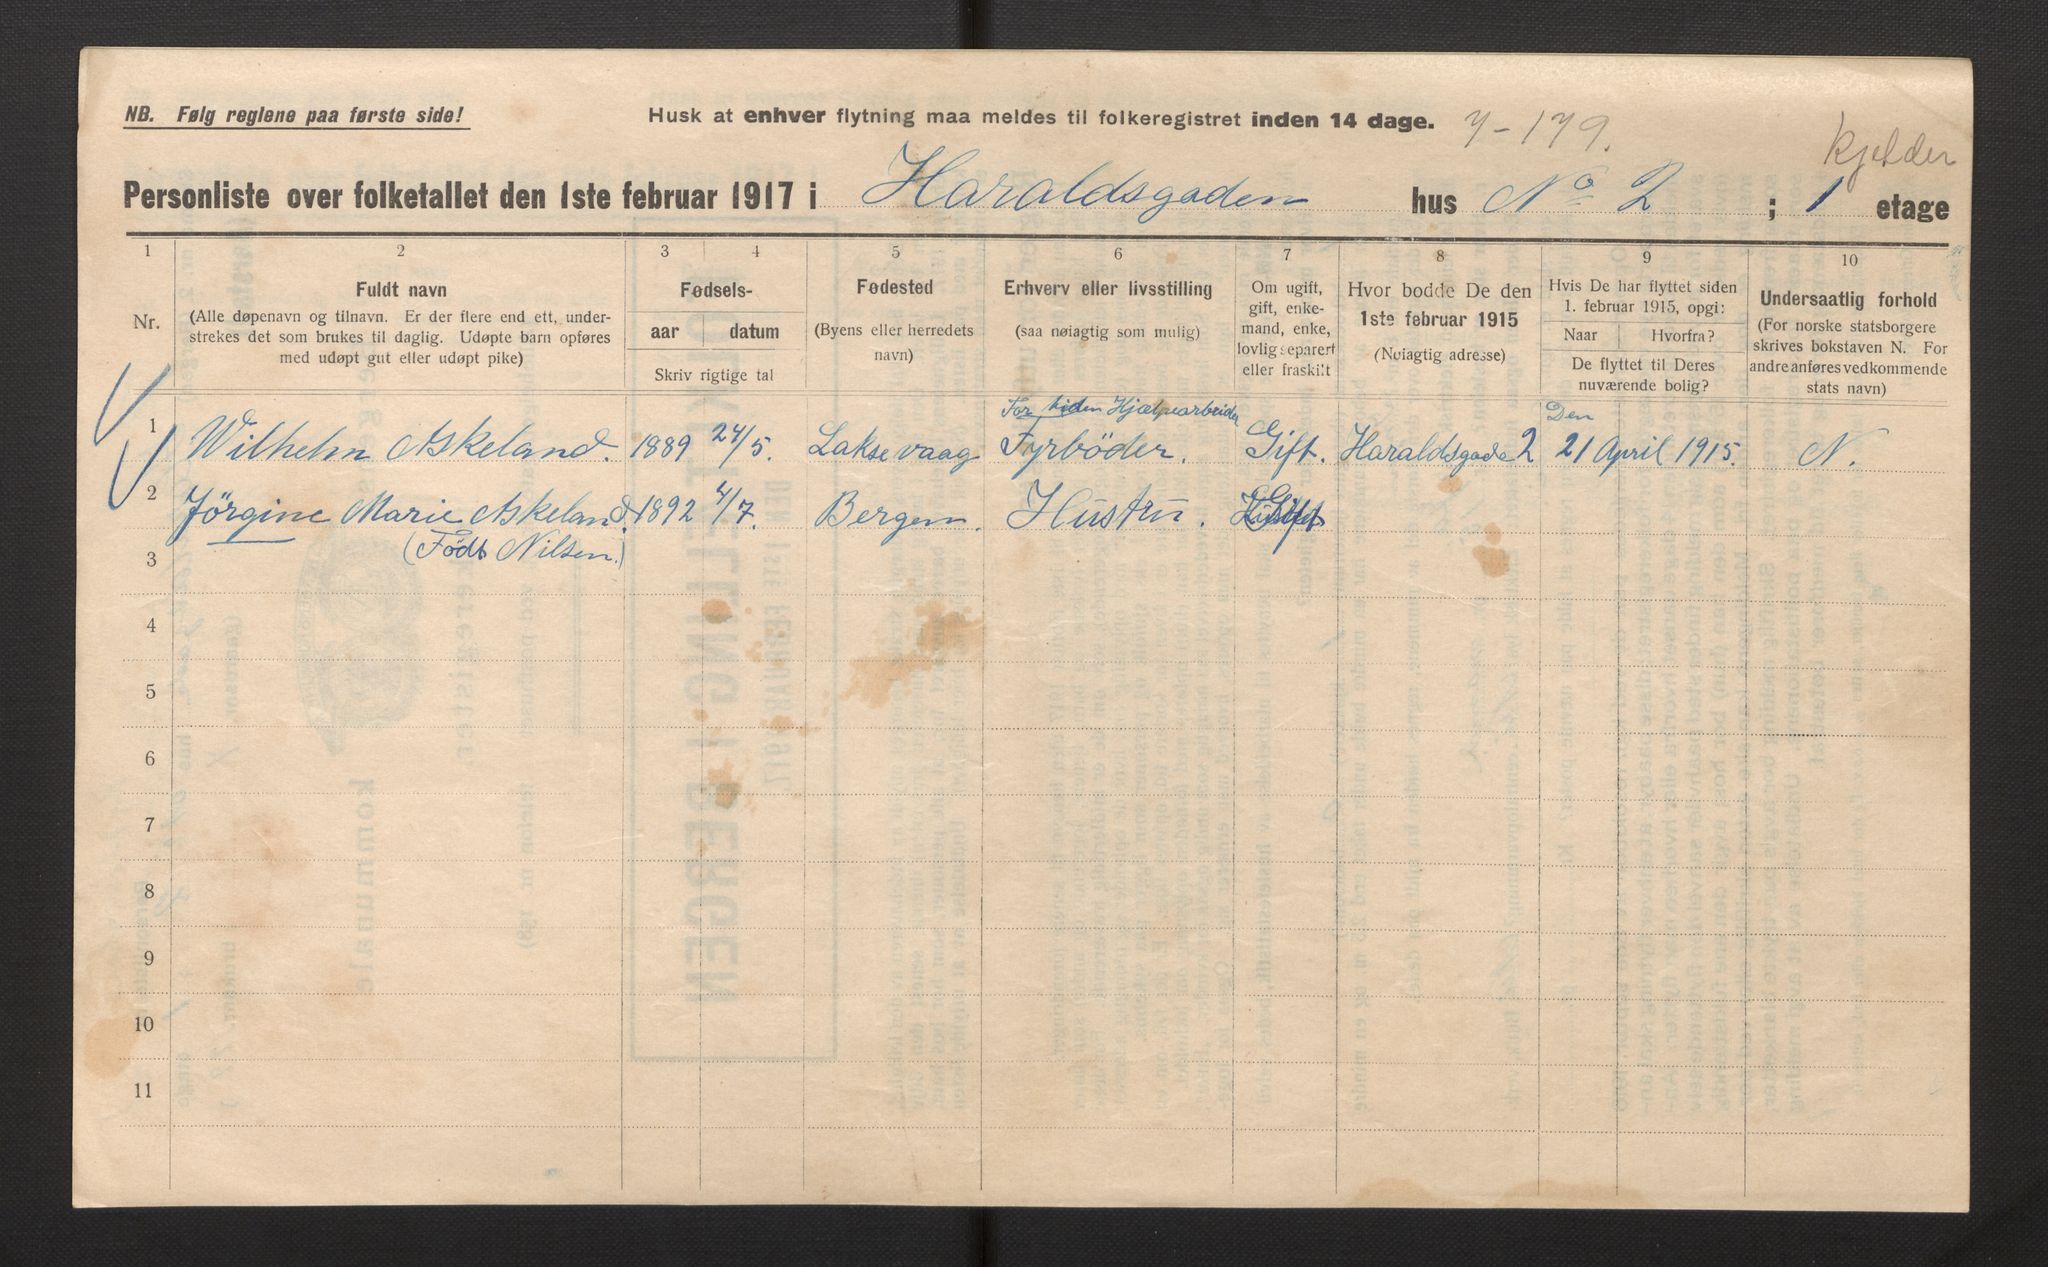 NB. Følg reglene paa første side!
Husk at enhver flytning maa meldes til folkeregistret inden 14 dage.
7-179.
kjelder
Personliste over folketallet den 1ste februar 1917 i Haraldsgaden hus No 2 ; 1 etage
1 2 3 4 5 6 7 8 9 10
Nr.
Fuldt navn
(Alle døpenavn og tilnavn. Er der flere end ett, under-
strekes det som brukes til daglig. Udøpte barn opføres
med udøpt gut eller udøpt pike)
Fødsels-
aar datum
Skriv rigtige tal
Fødested
(Byens eller herredets
navn)
Erhverv eller livsstilling
(saa nøiagtig som mulig)
Om ugift,
gift, enke-
mand, enke,
lovlig separert
eller fraskilt
Hvor bodde De den
1ste februar 1915
(Nøiagtig adresse)
Hvis De har flyttet siden
1. februar 1915, opgi:
Naar Hvorfra?
De flyttet til Deres
nuværende bolig?
Undersaatlig forhold
(For norske statsborgere
skrives bokstaven N. For
andre anføres vedkommende
stats navn)
For tiden Hjælpearbeider
Den
1 Wilhelm Askeland. 1889 24/5. Laksevaag Fyrböder. Gift. Haraldsgade 2 21 April 1915. N.
2 Jörgine Marie Askeland. 1892 4/7. Bergen. Hustru. Gift
(Födt Nilsen.)
3
4
5
6
7
8
9
10
11